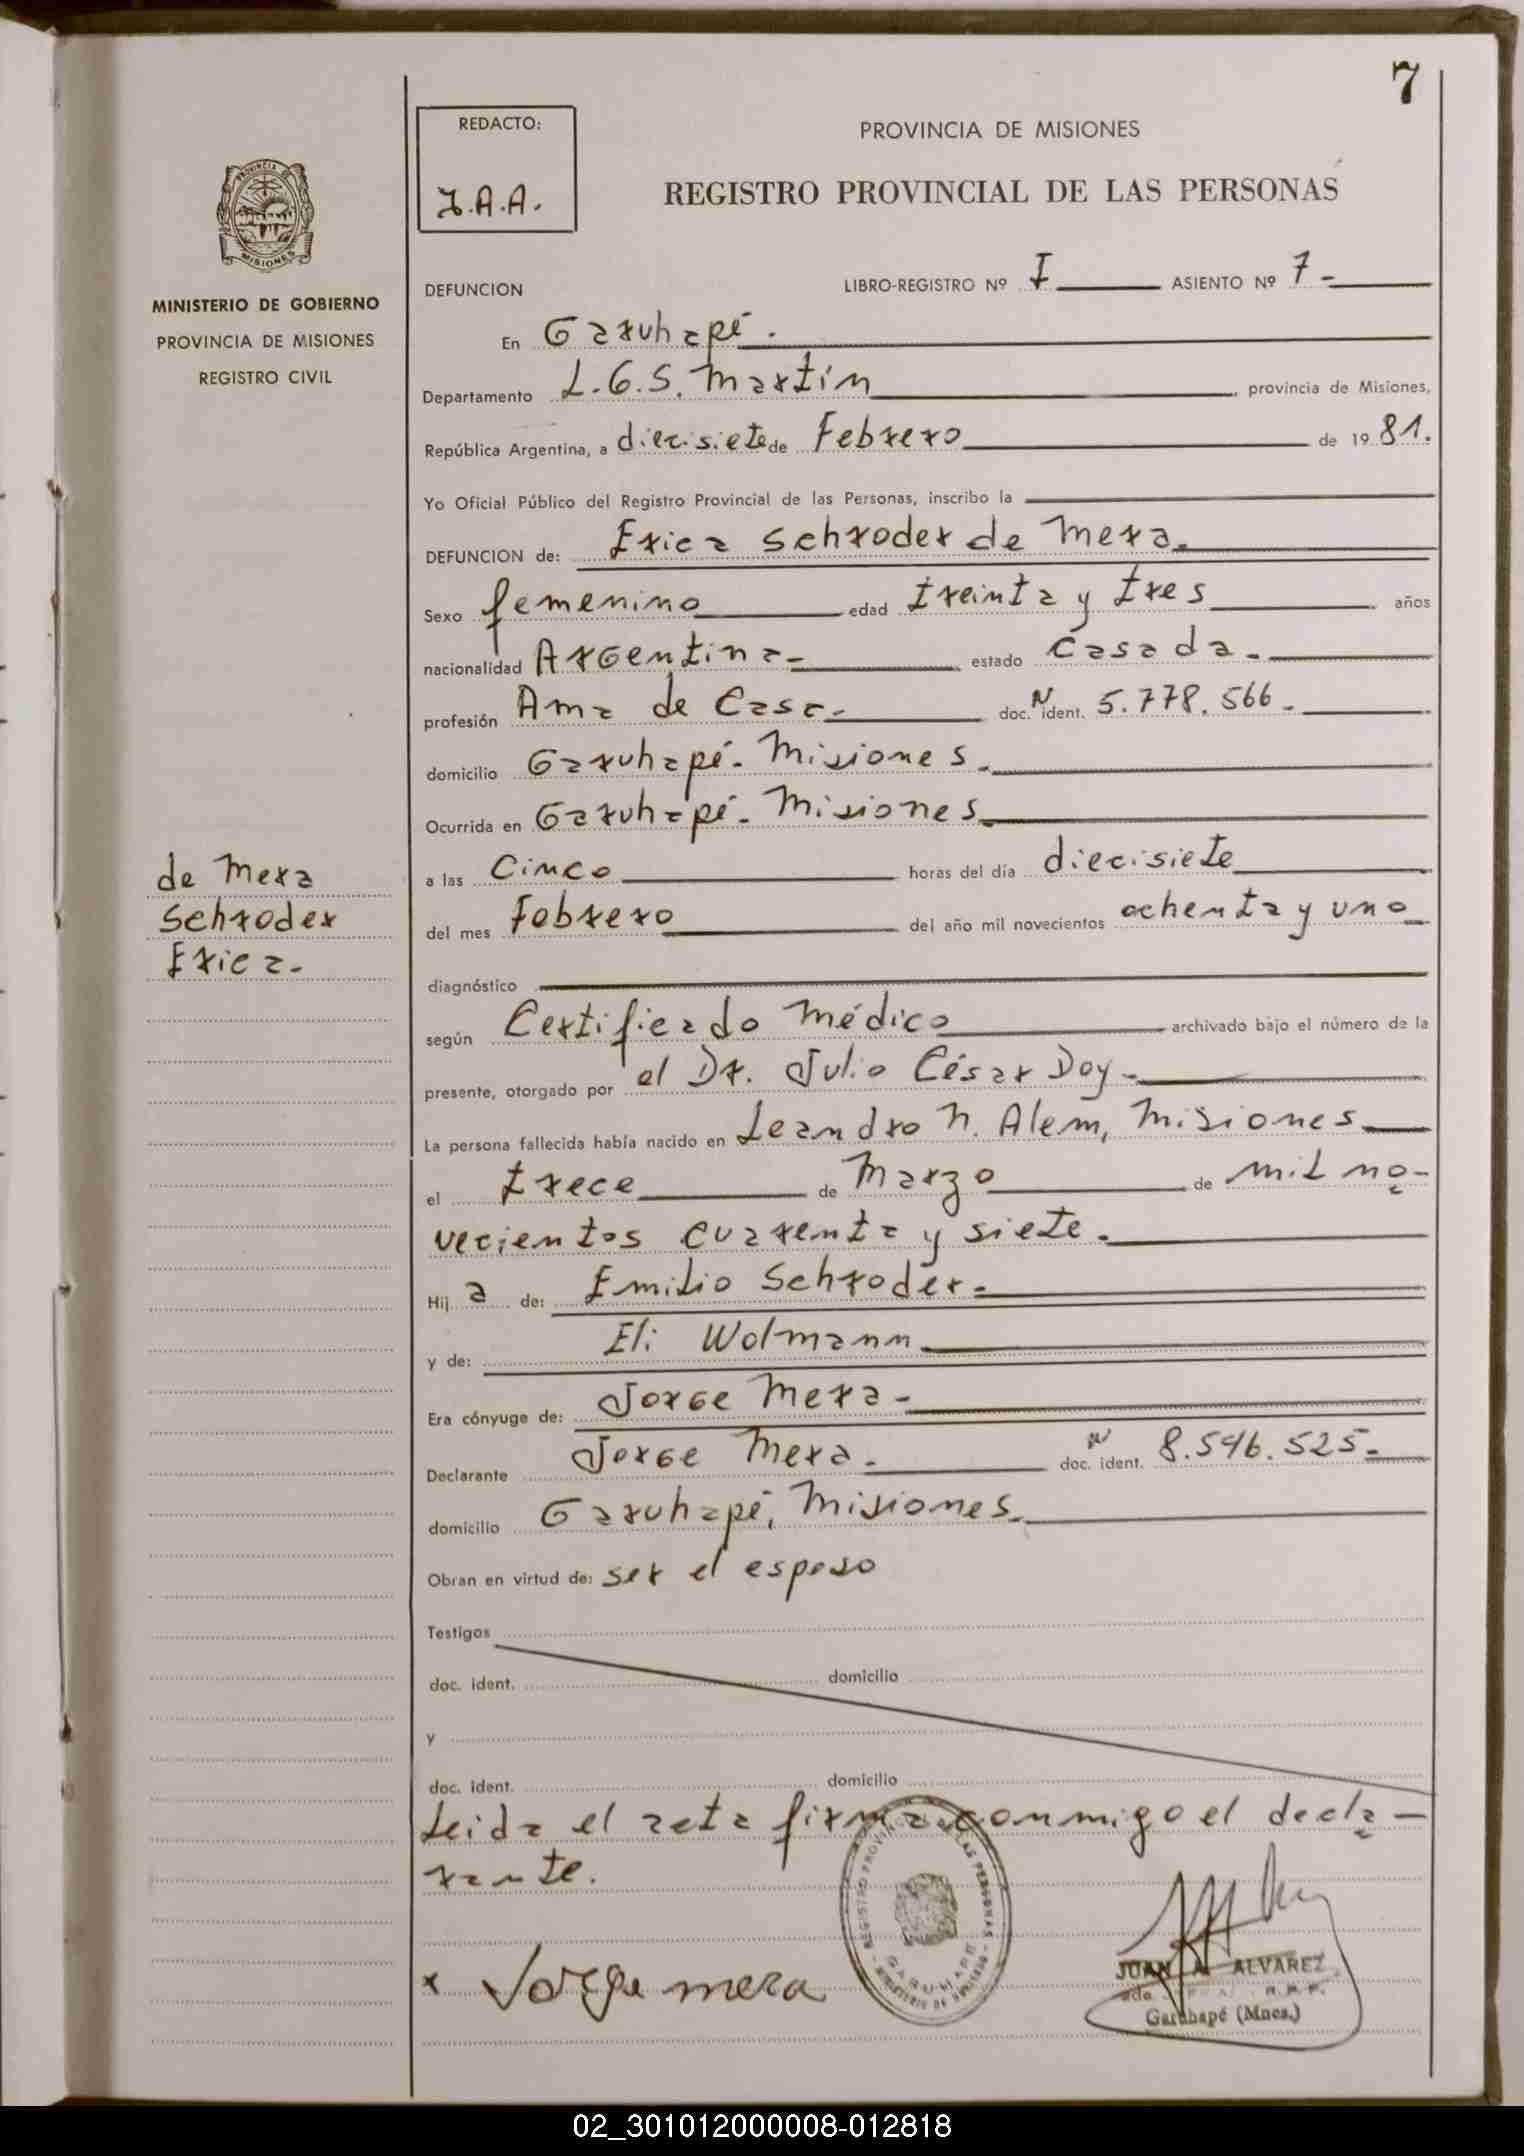 7
REDACTO:
J.A.A.
PROVINCIA DE MISIONES
REGISTRO PROVINCIAL DE LAS PERSONAS
MINISTERIO DE GOBIERNO
PROVINCIA DE MISIONES
REGISTRO CIVIL
DEFUNCION LIBRO-REGISTRO Nº I ASIENTO Nº 7-
En Garuhapé.
Departamento L.G.S. Martín, provincia de Misiones,
República Argentina, a diecisiete de Febrero de 1981.
Yo Oficial Público del Registro Provincial de las Personas, inscribo la
DEFUNCION de: Erica Schroder de Mera.
Sexo femenino edad treinta y tres años
nacionalidad Argentina- estado Casada.
profesión Ama de Casa- doc. N ident. 5.778.566-
domicilio Garuhapé- Misiones.
Ocurrida en Garuhapé- Misiones
a las Cinco horas del día diecisiete
del mes Febrero del año mil novecientos ochenta y uno
de Mera
Schroder
Erica-
diagnóstico
según Certificado Médico archivado bajo el número de la
presente, otorgado por el Dr. Julio César Doy-
La persona fallecida había nacido en Leandro N. Alem, Misiones
el trece de Marzo de mil no-
vecientos cuarenta y siete.
Hij a de: Emilio Schroder-
y de: Eli Wolmann
Era cónyuge de: Jorge Mera-
Declarante Jorge Mera. doc. N ident. 8.546.525-
domicilio Garuhapé, Misiones.
Obran en virtud de: ser el esposo
Testigos
doc. ident. domicilio
y
doc. ident. domicilio
Leida el acta firma conmigo el decla-
rante.
x Jorge mera
REGISTRO PROVINCIAL DE LAS PERSONAS
GARUHAPE
JUAN A. ALVAREZ
R.P.P.
Garuhapé (Mnes.)
02_301012000008-012818